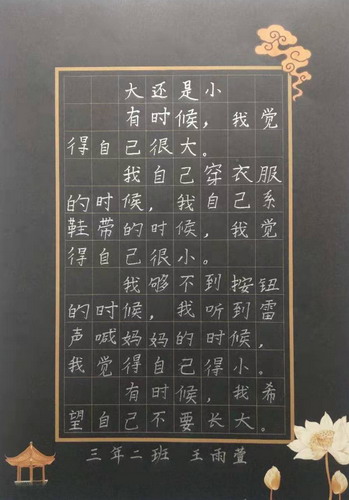 大还是小
有时候，我觉
得自己很大。
我自己穿衣服
的时候，我自己系
鞋带的时候，我觉
得自己很小。
我够不到按钮
的时候，我听到雷
声喊妈妈的时候，
我觉得自己得小。
有时候，我希
望自己不要长大。
三年二班 王雨萱